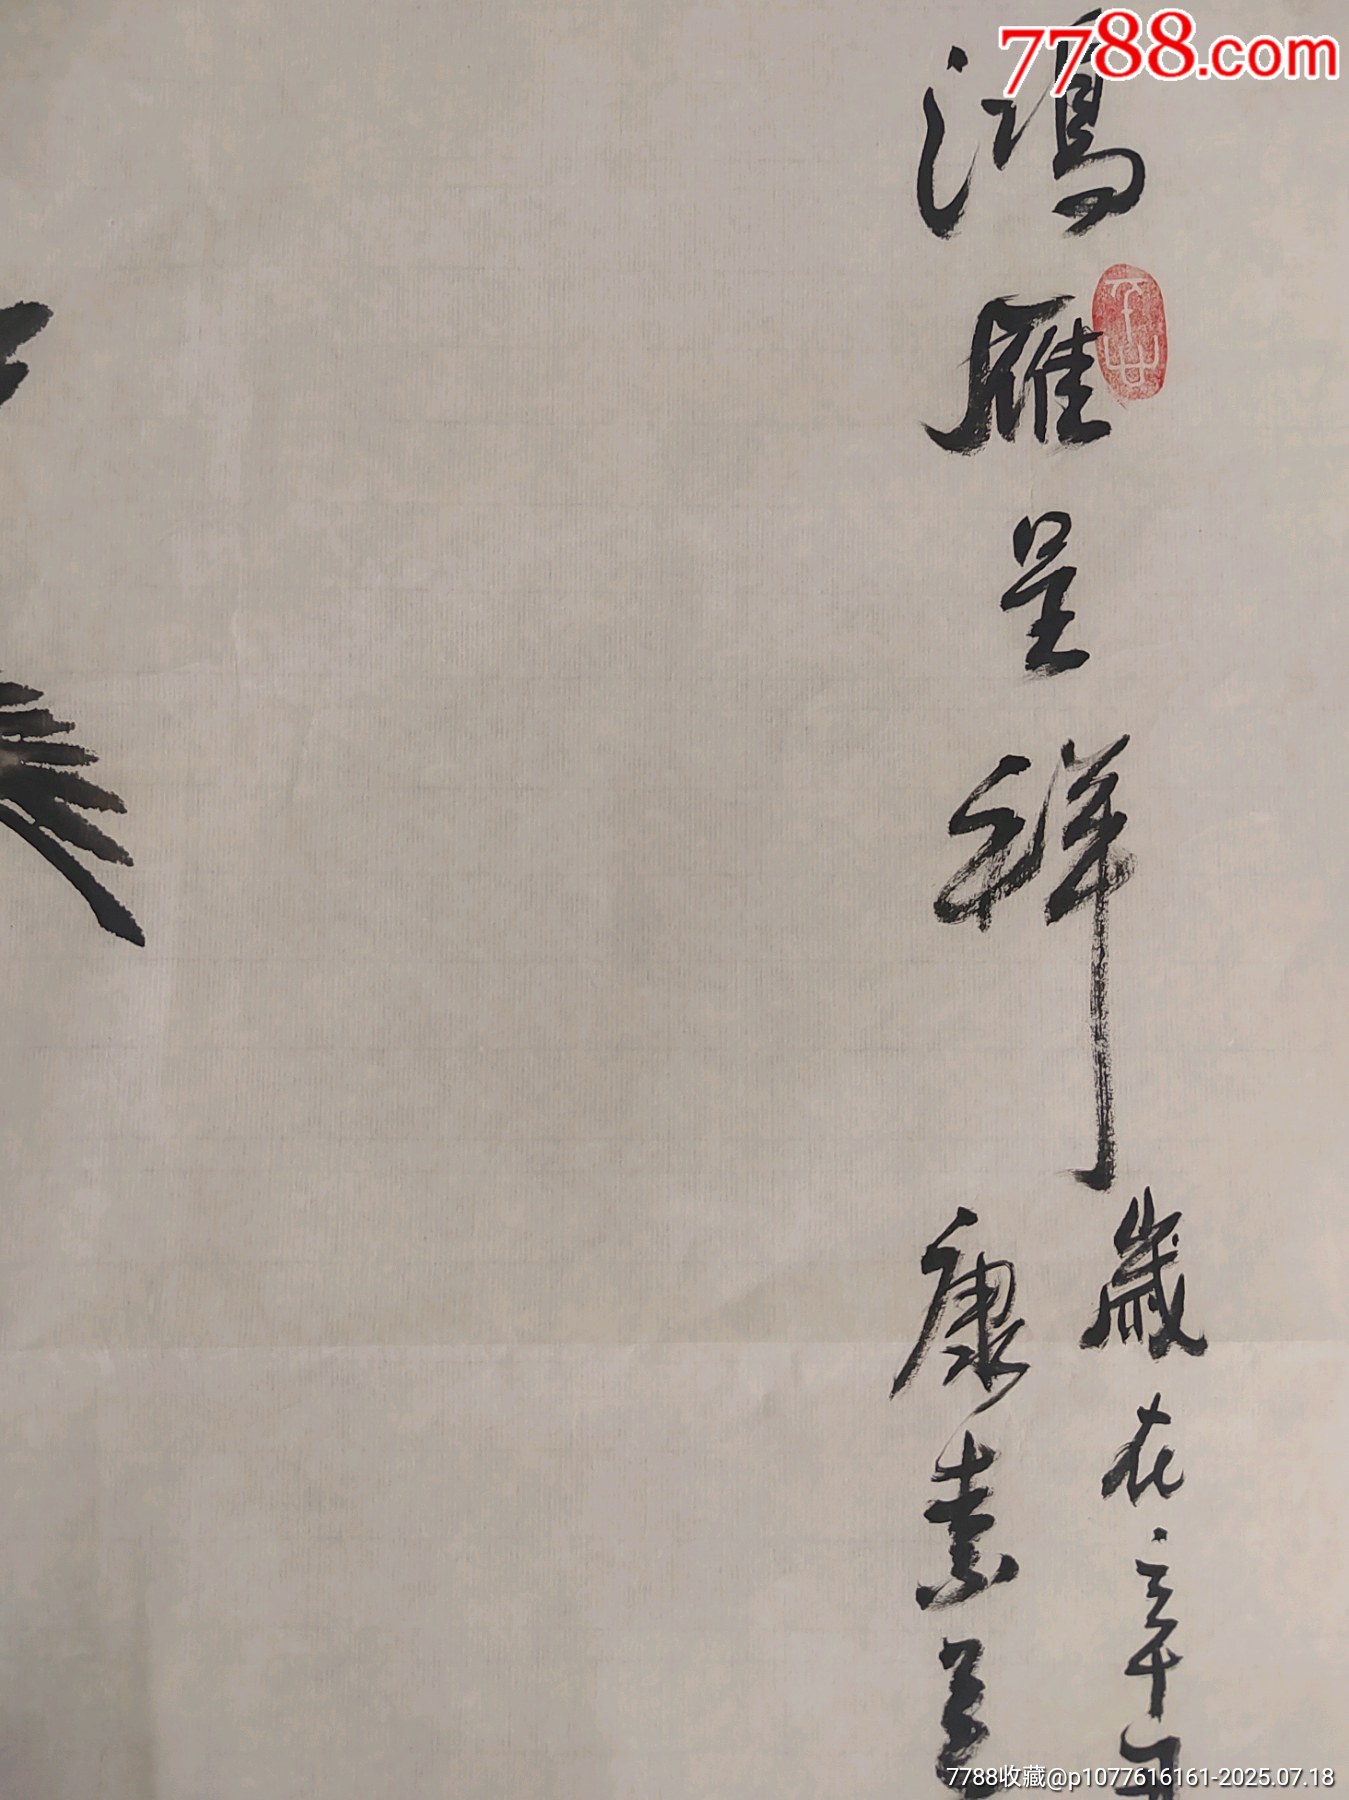 7788.com
鴻雁呈祥
歲在辛
康素
7788收藏@p1077616161-2025.07.18